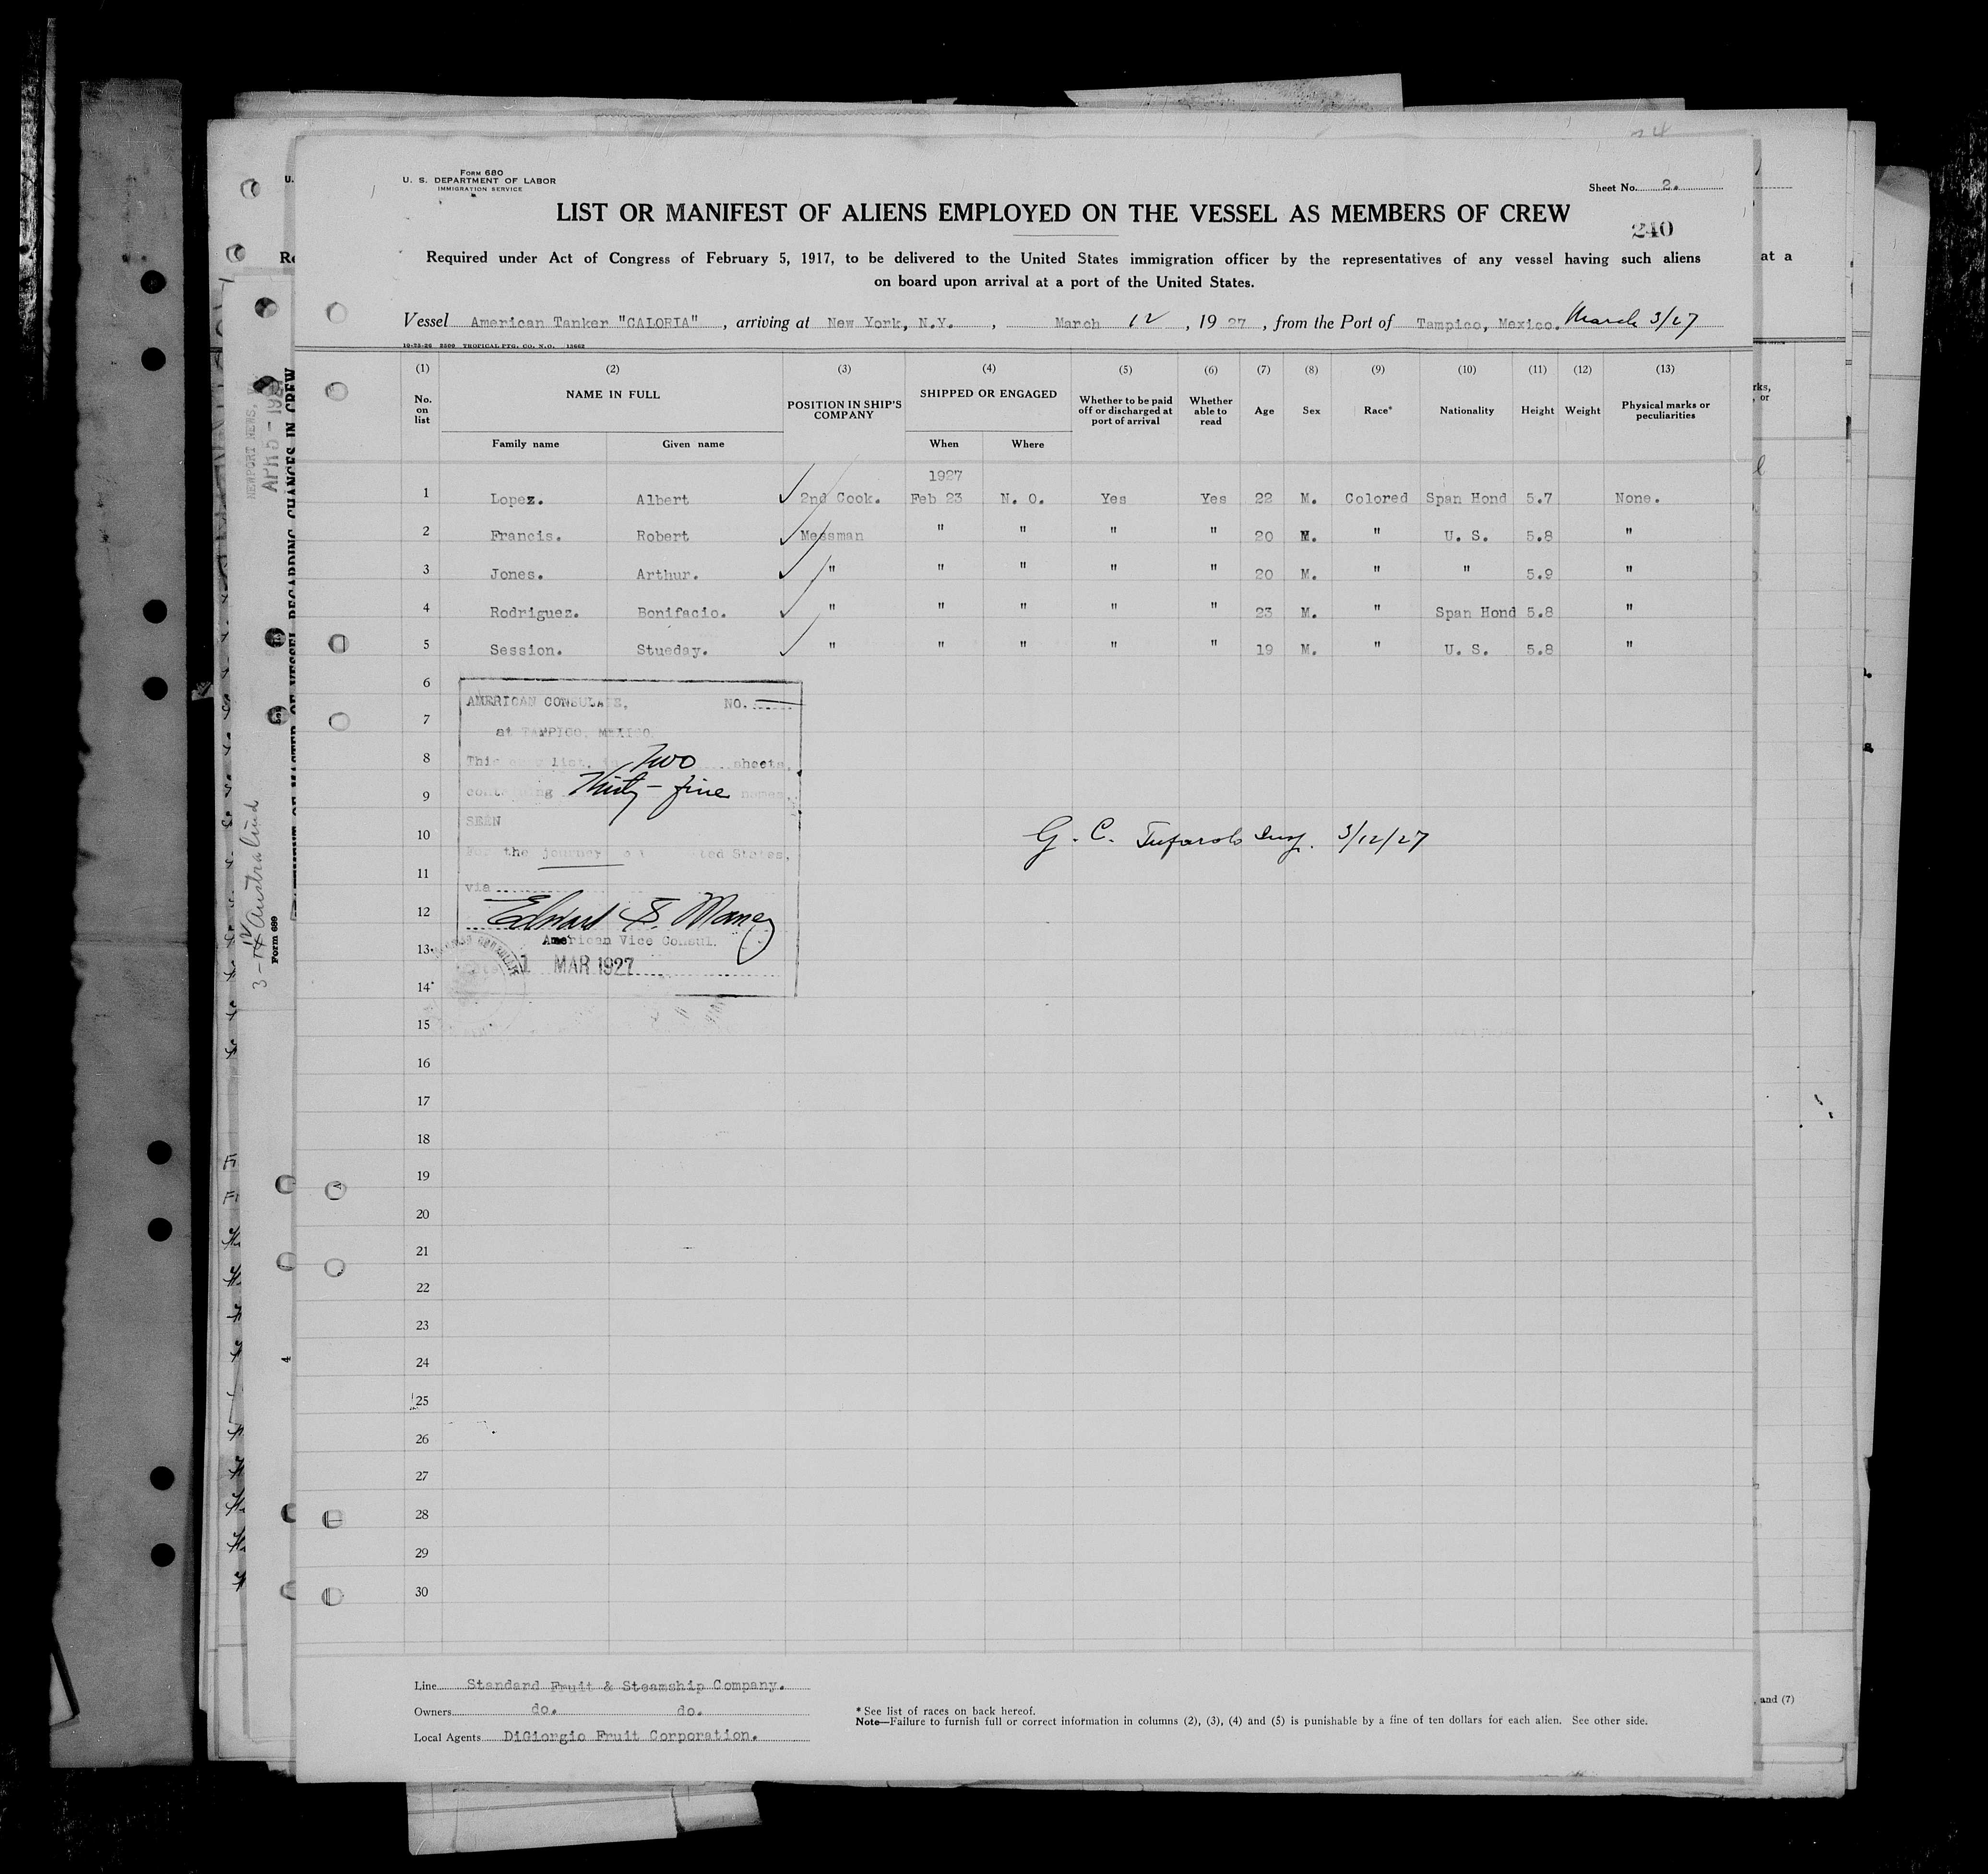 24
Form 680
U. S. DEPARTMENT OF LABOR
IMMIGRATION SERVICE
Sheet No. 2.
LIST OR MANIFEST OF ALIENS EMPLOYED ON THE VESSEL AS MEMBERS OF CREW
240
Required under Act of Congress of February 5, 1917, to be delivered to the United States immigration officer by the representatives of any vessel having such aliens
on board upon arrival at a port of the United States.
Vessel American Tanker "CALORIA", arriving at New York, N.Y., March 12, 1927, from the Port of Tampico, Mexico. March 3/27
10-25-26 2500 TROPICAL PTG. CO. N.O. 13662
(1) (2) (3) (4) (5) (6) (7) (8) (9) (10) (11) (12) (13)
No. on list NAME IN FULL POSITION IN SHIP'S COMPANY SHIPPED OR ENGAGED Whether to be paid off or discharged at port of arrival Whether able to read Age Sex Race* Nationality Height Weight Physical marks or peculiarities
Family name Given name When Where
1927
1 Lopez. Albert 2nd Cook. Feb 23 N. O. Yes Yes 22 M. Colored Span Hond 5.7 None.
2 Francis. Robert Messman " " " " 20 M. " U. S. 5.8 "
3 Jones. Arthur. " " " " " 20 M. " " 5.9 "
4 Rodriguez. Bonifacio. " " " " " 23 M. " Span Hond 5.8 "
5 Session. Stueday. " " " " " 19 M. " U. S. 5.8 "
6
7
8
9
10
11
12
13
14
15
16
17
18
19
20
21
22
23
24
25
26
27
28
29
30
AMERICAN CONSULATE, NO.
at TAMPICO, MEXICO.
This crew list, in Two sheets,
containing Thirty-five names.
SEEN
For the journey to United States,
via
Edward S. Maney
American Vice Consul.
1 MAR 1927
G. C. Insp. 3/12/27
Line Standard Fruit & Steamship Company.
Owners do. do.
Local Agents DiGiorgio Fruit Corporation.
* See list of races on back hereof.
Note—Failure to furnish full or correct information in columns (2), (3), (4) and (5) is punishable by a fine of ten dollars for each alien. See other side.
NEWPORT NEWS,
Form 689
at a
and (7)